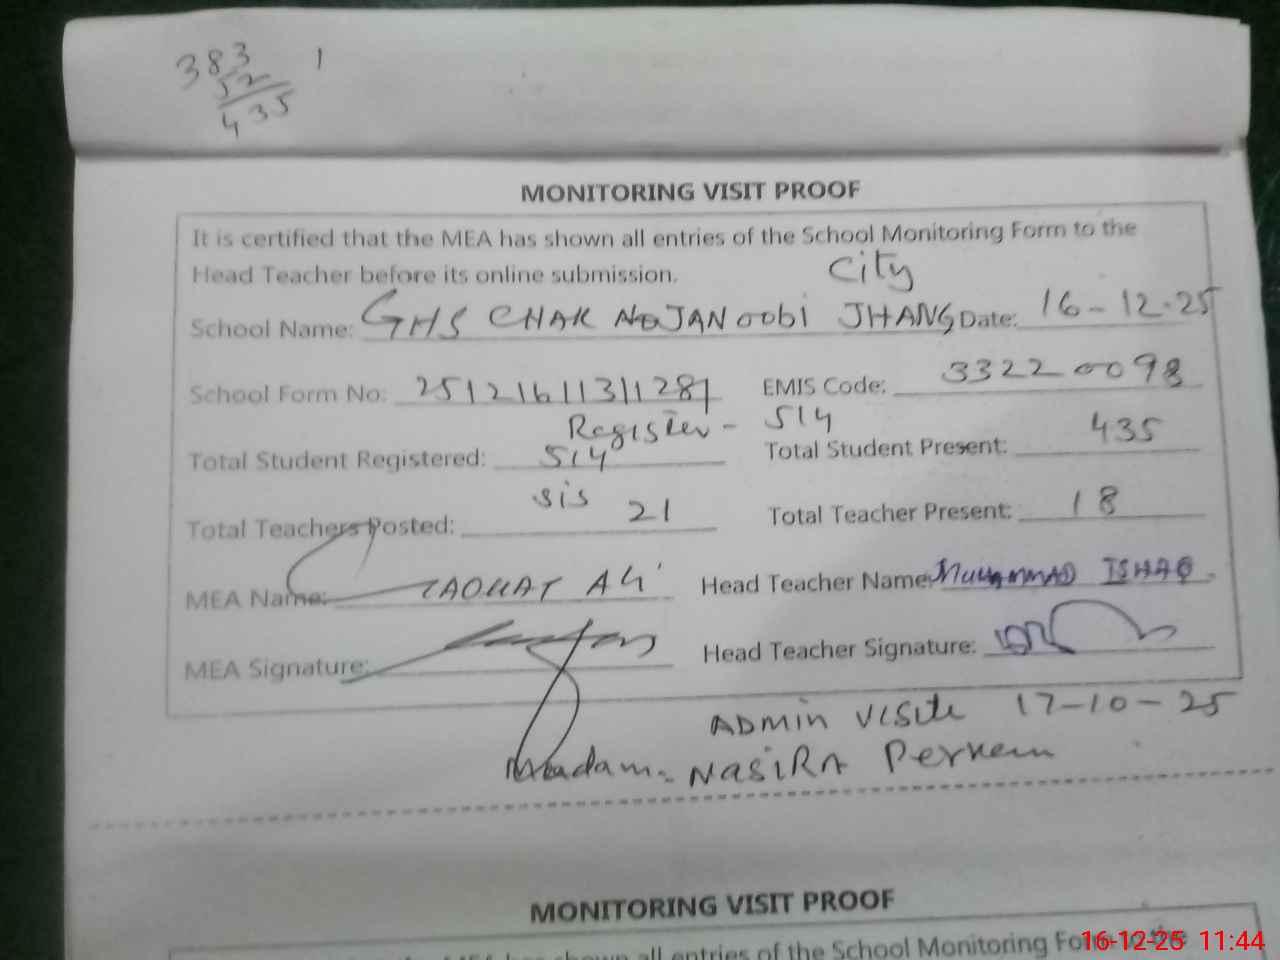 383 1
52
435
MONITORING VISIT PROOF
It is certified that the MEA has shown all entries of the School Monitoring Form to the
Head Teacher before its online submission.
City
School Name: GHS CHAK JANOObi JHANG Date: 16-12-25
School Form No: 2512161131128 EMIS Code: 33220098
Register - 514
Total Student Registered: 514 Total Student Present: 435
sis
Total Teachers Posted: 21 Total Teacher Present: 18
MEA Name: Ali Head Teacher Name: MUHAMMAD ISHAQ
MEA Signature: Head Teacher Signature:
ADMIN Visit 17-10-25
Madam NASIRA Perveen
MONITORING VISIT PROOF
shown all entries of the School Monitoring Form to the
16-12-25 11:44